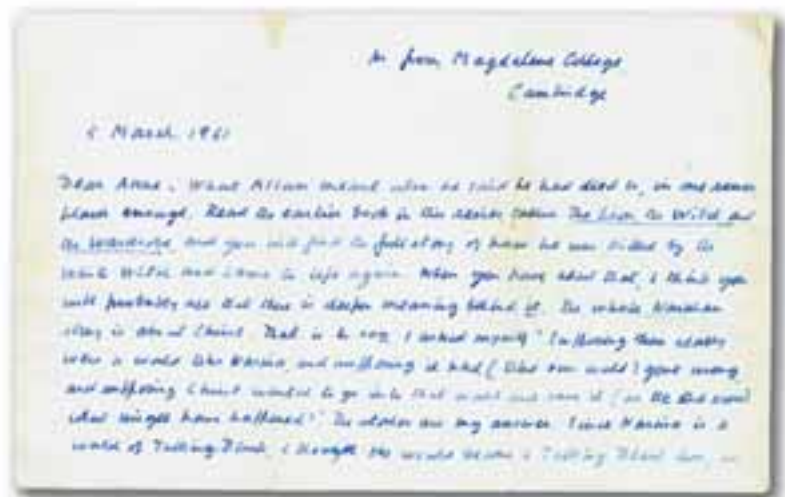 as from Magdalene College
Cambridge
5 March 1961
Dear Anne - What Aslan meant when he said he had died is, in one sense
plain enough. Read the earlier book in this series called The Lion the Witch and
the Wardrobe and you will find the full story of how he was killed by the
White Witch and came to life again. When you have read that, I think you
will probably see that there is deeper meaning behind it. The whole Narnian
story is about Christ. That is to say, I asked myself 'Supposing there really
were a world like Narnia, and supposing it had (like our world) gone wrong
and supposing Christ wanted to go into that world and save it (as He did ours)
what might have happened?' The stories are my answer. Since Narnia is a
world of Talking Beasts, I thought He would become a Talking Beast there, as